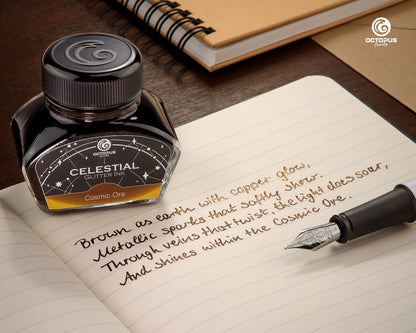 OCTOPUS
fluids
OCTOPUS
fluids
CELESTIAL
GLITTER INK
Cosmic Ore
Brown as earth with copper glow,
Metallic sparks that softly show.
Through veins that twist, the light does soar,
And shines within the Cosmic Ore.